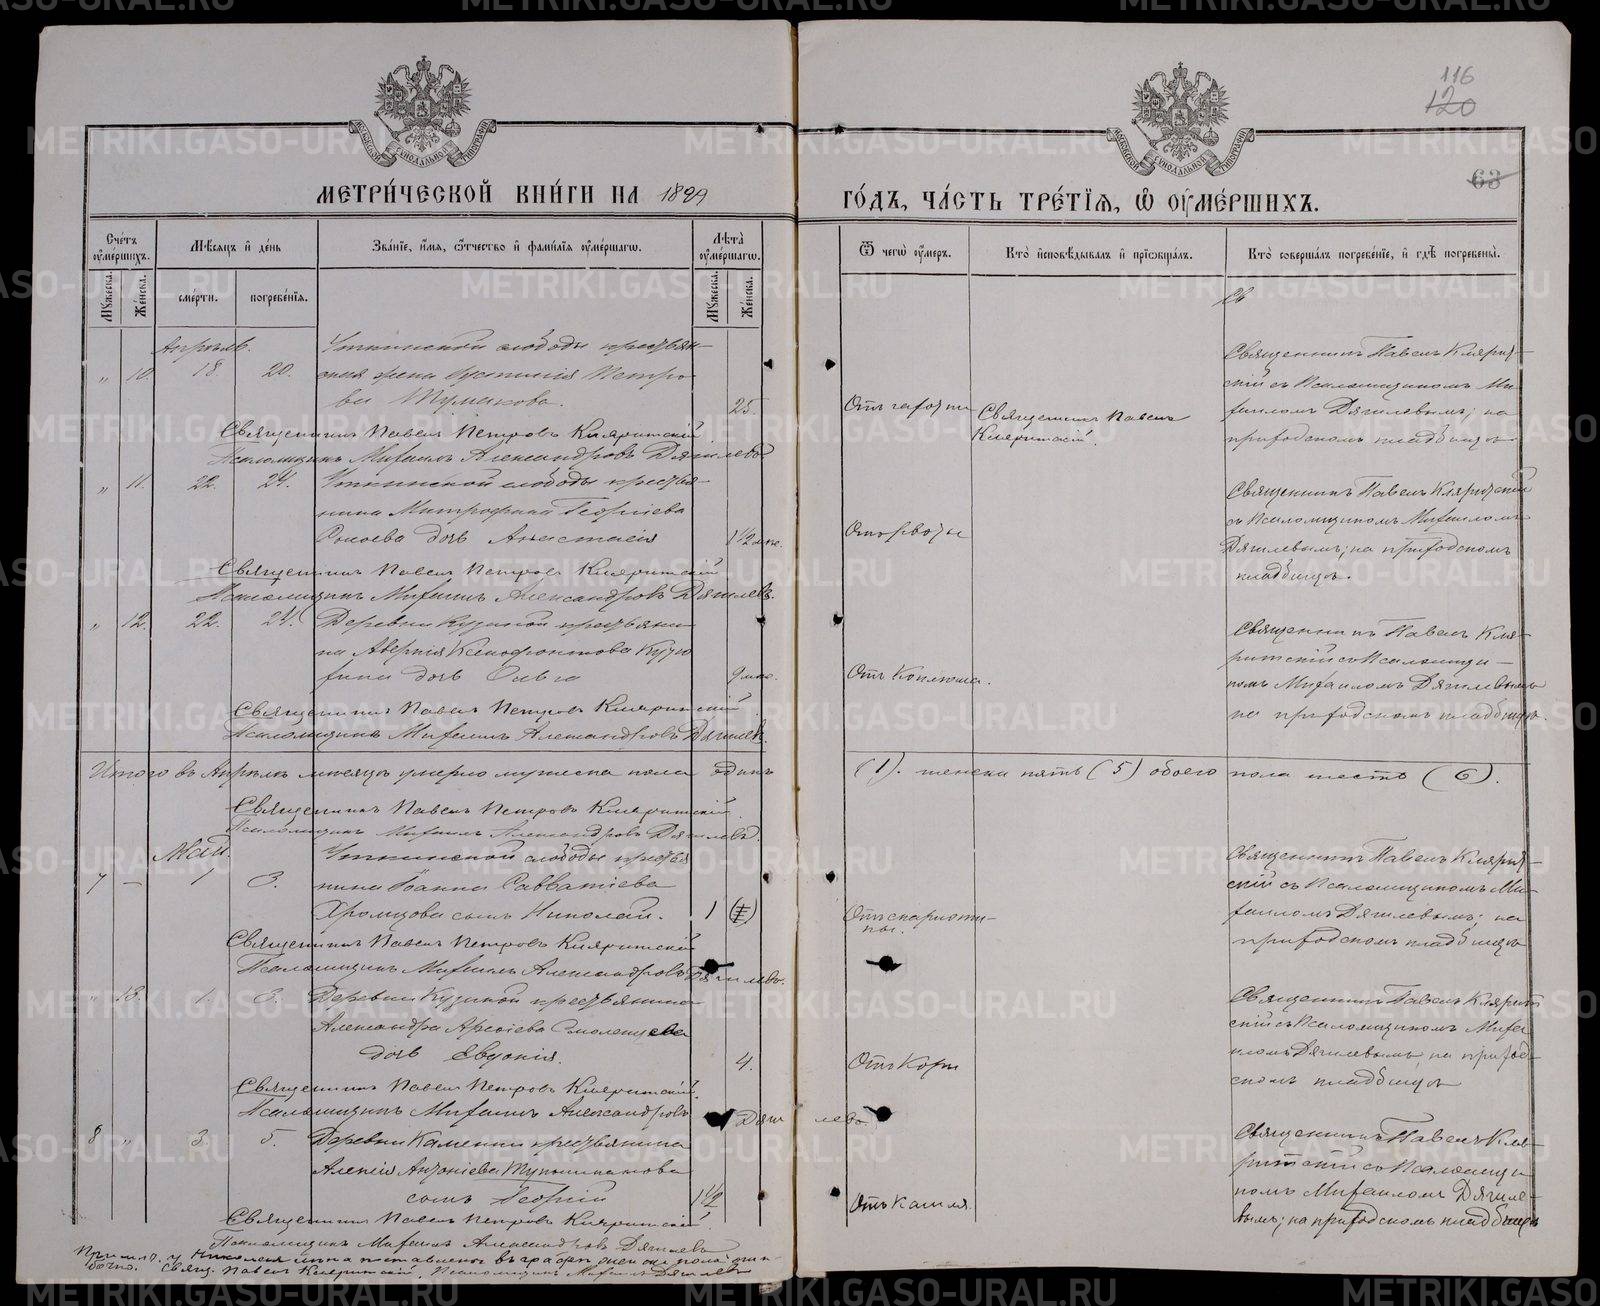 116
120
63
МЕТРИ́ЧЕСКОЙ КНИ́ГИ НА 1899 ГО́ДЪ, ЧА́СТЬ ТРЕ́ТІѦ, Ѡ ОУМЕ́РШИХЪ.
Счетъ оумершихъ.
Мѣсяцъ и день
Званіе, имя, отчество и фамилія оумершагω.
Лѣта оумершагω.
Ѿ чегω оумеръ.
Кто исповѣдывалъ и пріωбщалъ.
Кто совершалъ погребеніе, и гдѣ погребены.
Мужеска.
Женска.
смерти.
погребенія.
Мужеска.
Женска.
Апрѣль.
Уткинской слободы крестьян-
" 10. 18. 20. ская жена Іустинія Петро-
ва Тумакова. 25.
Отъ чахотки
Священникъ Павелъ
Кляритскій.
Священникъ Павелъ Клярит-
скій съ Псаломщикомъ Ми-
хаиломъ Дягилевымъ; на
приходскомъ кладбищѣ
Священникъ Павелъ Петровъ Кляритскій
Псаломщикъ Михаилъ Александровъ Дягилевъ
" 11. 22. 24. Уткинской слободы крестья-
нина Митрофана Георгіева
дочь Анастасія 1 1/2 мѣс.
Отъ рвоты
Священникъ Павелъ Кляритскій
съ Псаломщикомъ Михаиломъ
Дягилевымъ; на приходскомъ
кладбищѣ.
Священникъ Павелъ Петровъ Кляритскій
Псаломщикъ Михаилъ Александровъ Дягилевъ.
" 12. 22. 24. Деревни Курьиной крестьяни-
на Аверкія Ксенофонтова
дочь Ольга 9 мѣс.
Отъ Коклюша.
Священникъ Павелъ Кля-
ритскій съ Псаломщи-
комъ Михаиломъ Дягилевымъ
на приходскомъ кладбищѣ.
Священникъ Павелъ Петровъ Кляритскій
Псаломщикъ Михаилъ Александровъ Дягилевъ.
Итого въ Апрѣлѣ мѣсяцѣ умерло мужеска пола одинъ (1). женска пять (5) обоего пола шесть (6).
Священникъ Павелъ Петровъ Кляритскій
Псаломщикъ Михаилъ Александровъ Дягилевъ.
Май.
Уткинской слободы крестья
7 — 1 3. нина Іоанна Савватіева
Хромцова сынъ Николай. 1
Отъ скарлати-
ны.
Священникъ Павелъ Клярит-
скій съ Псаломщикомъ Ми-
хаиломъ Дягилевымъ; на
приходскомъ кладбищѣ
Священникъ Павелъ Петровъ Кляритскій
Псаломщикъ Михаилъ Александровъ Дягилевъ.
" 13. 1. 3. Деревни Курьиной крестьянина
Александра Смоленцева
дочь Евдокія. 4.
Отъ Кори
Священникъ Павелъ Клярит
скій съ Псаломщикомъ Миха
иломъ Дягилевымъ на приход-
скомъ кладбищѣ
Священникъ Павелъ Петровъ Кляритскій.
Псаломщикъ Михаилъ Александровъ Дягилевъ.
8 " 3. 5. Деревни Каменки крестьянина
Алексія Антоніева
сынъ Георгій 1 1/2
Отъ Кашля
Священникъ Павелъ Кля-
ритскій съ Псаломщи
комъ Михаиломъ Дягиле-
вымъ; на приходскомъ кладбищѣ
Священникъ Павелъ Петровъ Кляритскій
Псаломщикъ Михаилъ Александровъ Дягилевъ
METRIKI.GASO-URAL.RU